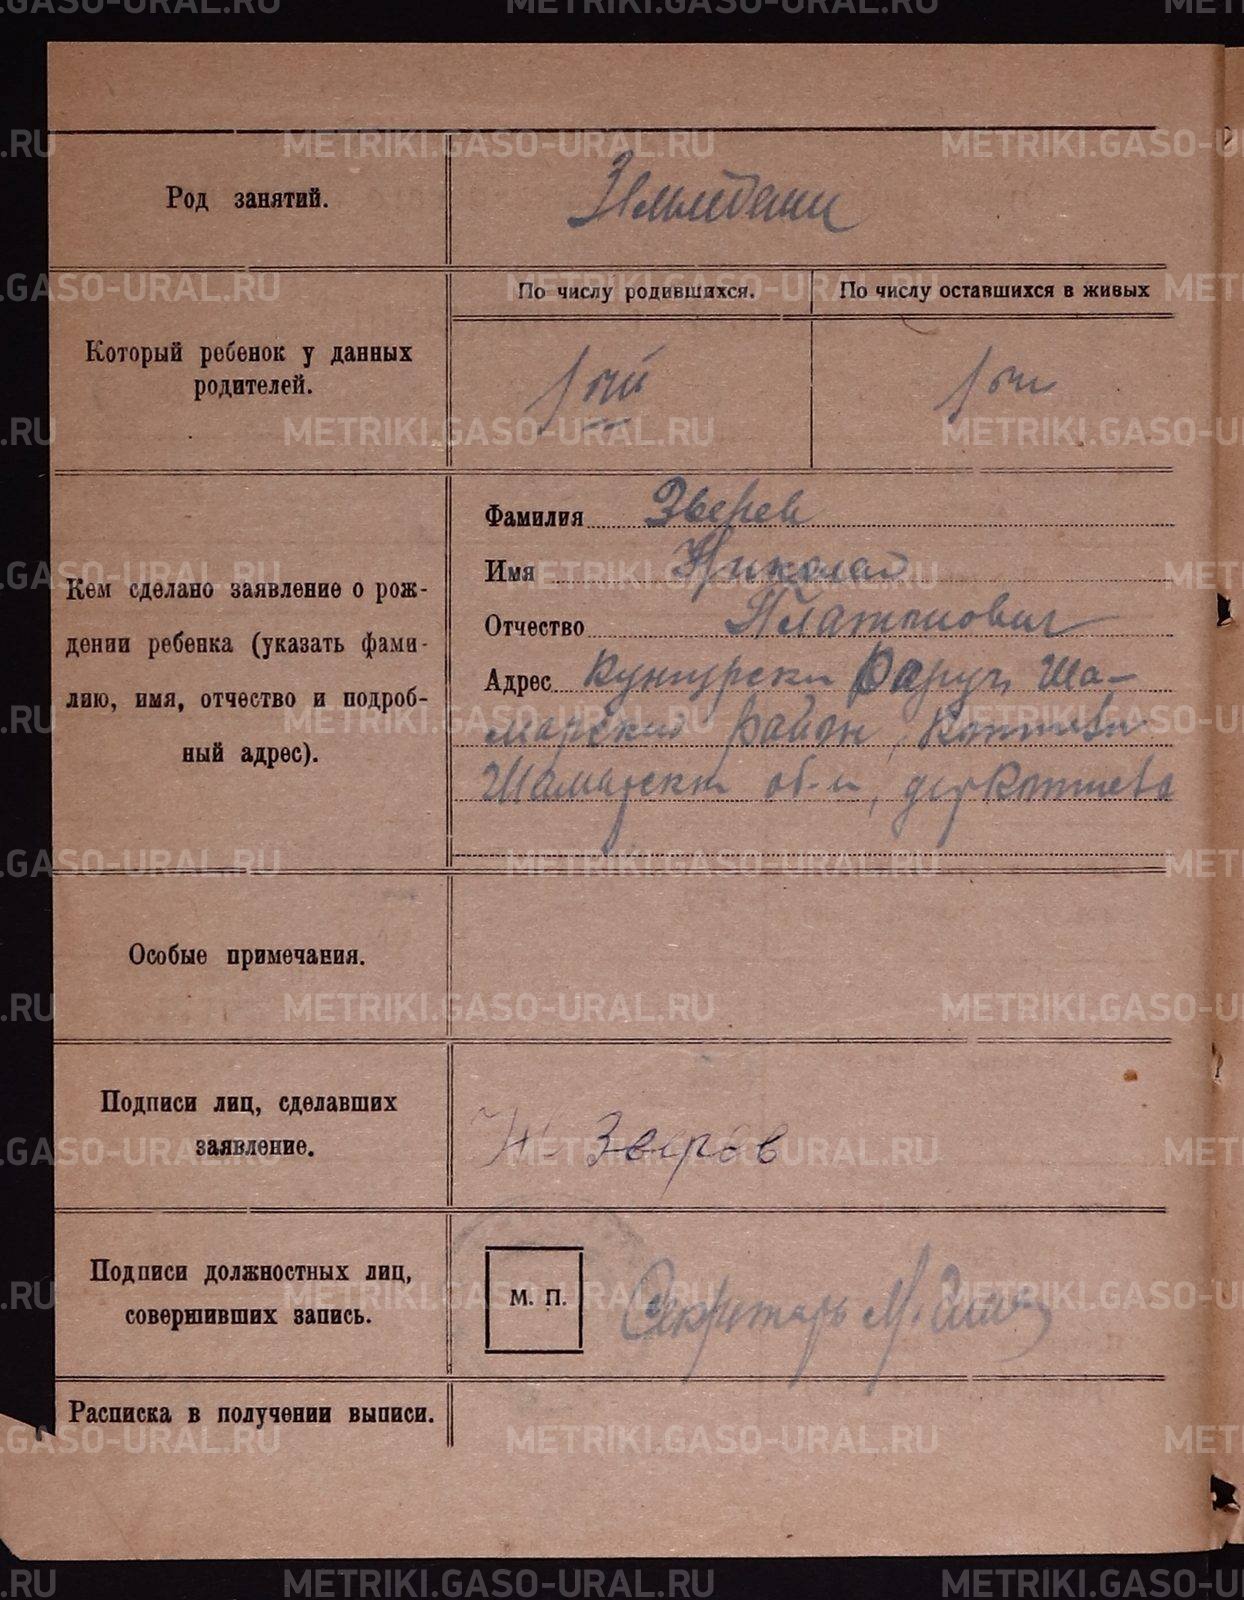 Род занятий.
По числу родившихся.
По числу оставшихся в живых
Который ребенок у данных
родителей.
1 ый
Фамилия Зверев
Имя Николай
Отчество Платонович
Адрес Кунгурски Округ, Ша-
марский район,
Шамарски
Кем сделано заявление о рож-
дении ребенка (указать фами-
лию, имя, отчество и подроб-
ный адрес).
Особые примечания.
Подписи лиц, сделавших
заявление.
Н Зверев
Подписи должностных лиц,
совершивших запись.
М. П.
Секретарь М.
Расписка в получении выписи.
METRIKI.GASO-URAL.RU